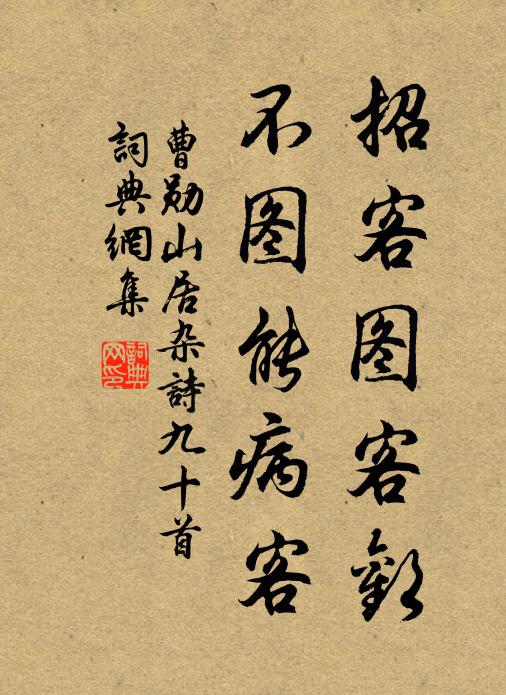 招客图客欢
不图能病客
曹勋山居杂詩九十首
詞典網集
詞典網印